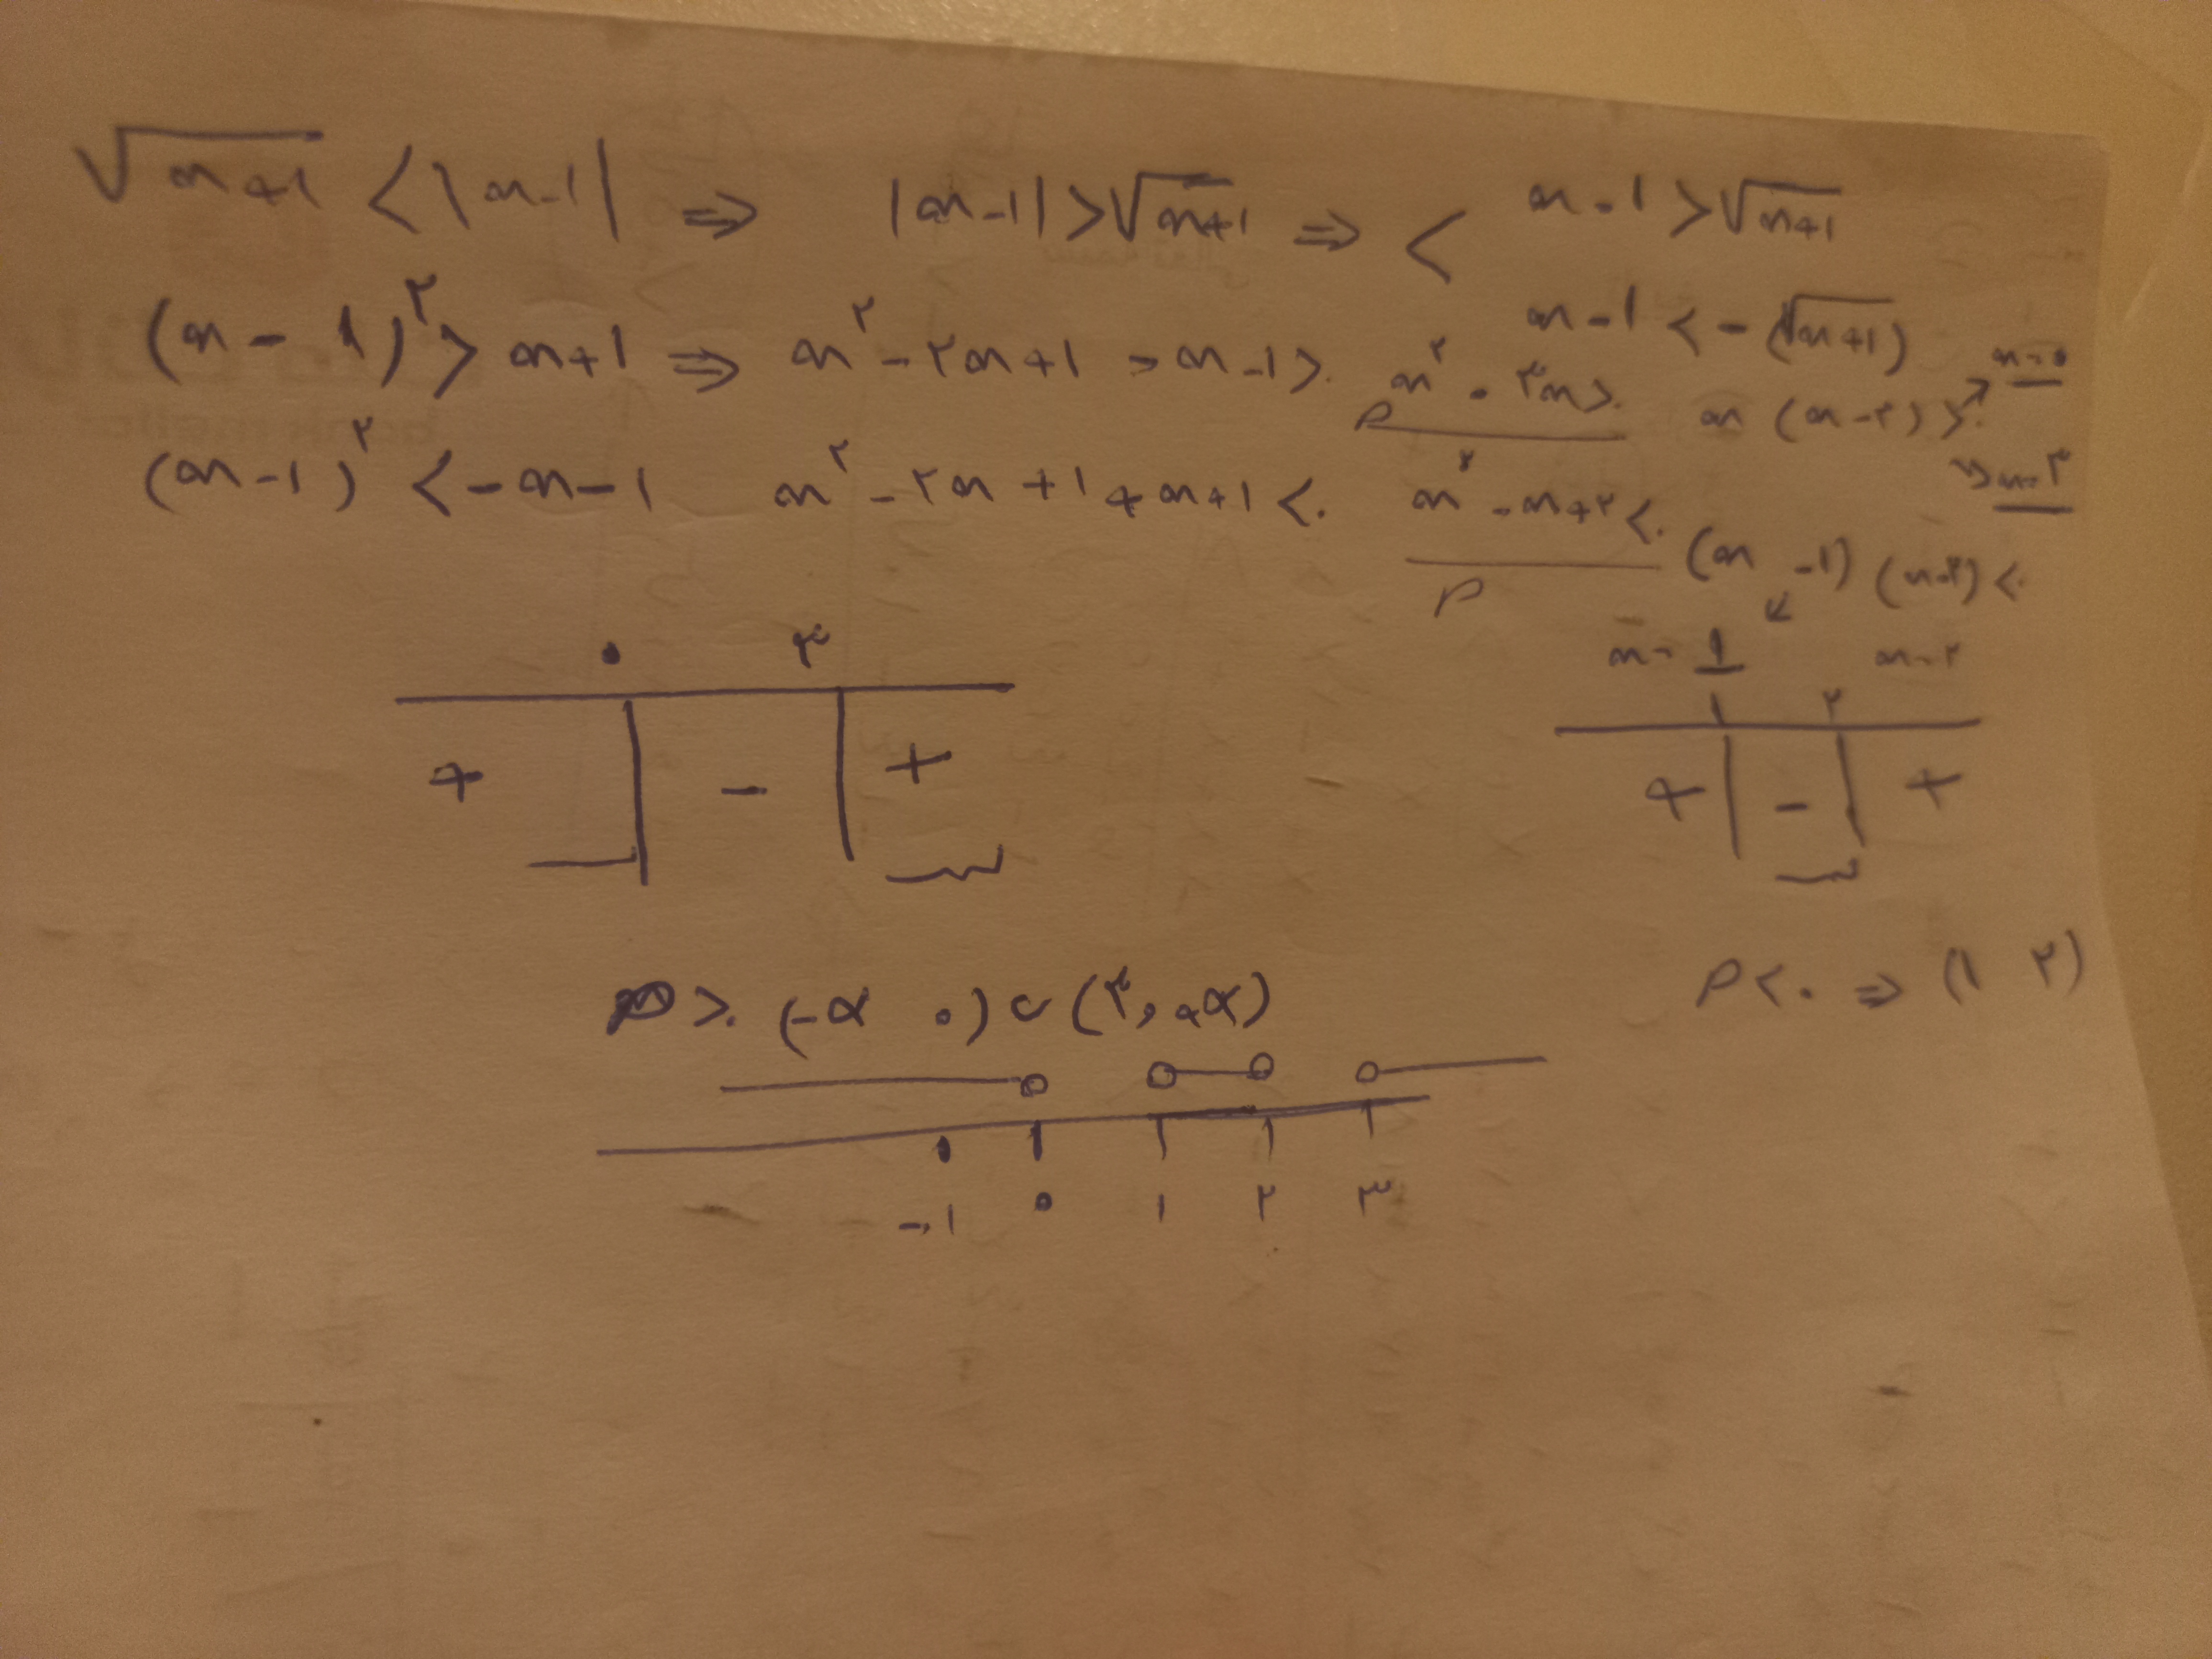 √(x+۱) < |x-۱| ⇒ |x-۱| > √(x+۱) ⇒ < x-۱ > √(x+۱)
x-۱ < -(√(x+۱))
(x-۱)^۲ > x+۱ ⇒ x^۲-۲x+۱-x-۱>۰ x^۲-۳x>۰ x(x-۳)>۰ x=۰
P x=۳
(x-۱)^۲ < -x-۱ x^۲-۲x+۱+x+۱<۰ x^۲-x+۲<۰ (x-۱)(x-۲)<۰
P x=۱ x=۲
۰ ۳ ۱ ۲
+ - + + - +
P>۰ (-∞ ۰)∪(۳,+∞) P<۰ ⇒ (۱ ۲)
-۱ ۰ ۱ ۲ ۳